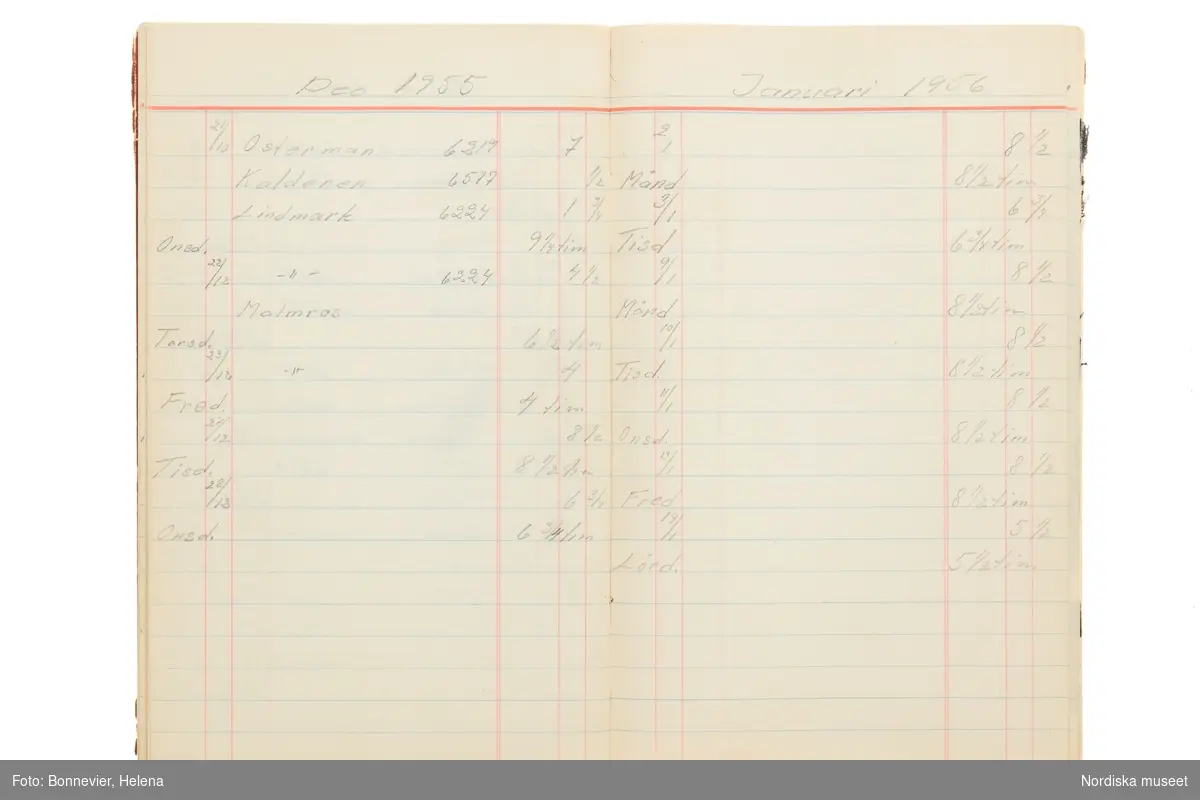 Dec 1955
21/12 Österman 6219 7
Kaldenen 6517 1/2
Lindmark 6224 1 3/4
Onsd. 9 1/4 tim
22/12 -"- 6224 4 1/2
Malmros
Torsd. 6 1/2 tim
23/12 -"- 4
Fred. 4 tim
27/12 8 1/2
Tisd. 8 1/2 tim
28/12 6 3/4
Onsd. 6 3/4 tim
Januari 1956
2/1 8 1/2
Månd 8 1/2 tim
3/1 6 3/4
Tisd 6 3/4 tim
9/1 8 1/2
Månd 8 1/2 tim
10/1 8 1/2
Tisd. 8 1/2 tim
11/1 8 1/2
Onsd. 8 1/2 tim
13/1 8 1/2
Fred 8 1/2 tim
14/1 5 1/2
Lörd. 5 1/2 tim
Foto: Bonnevier, Helena
Nordiska museet